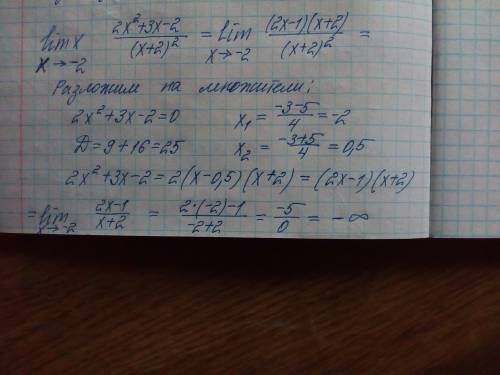 lim x 2x²+3x-2 / (x+2)² = lim x→-2 (2x-1)(x+2) / (x+2)² =
x→-2
Разложим на множители:
2x²+3x-2=0 x₁ = -3-5 / 4 = -2
D=9+16=25 x₂ = -3+5 / 4 = 0,5
2x²+3x-2=2(x-0,5)(x+2)=(2x-1)(x+2)
= lim x→-2 2x-1 / x+2 = 2·(-2)-1 / -2+2 = -5 / 0 = -∞